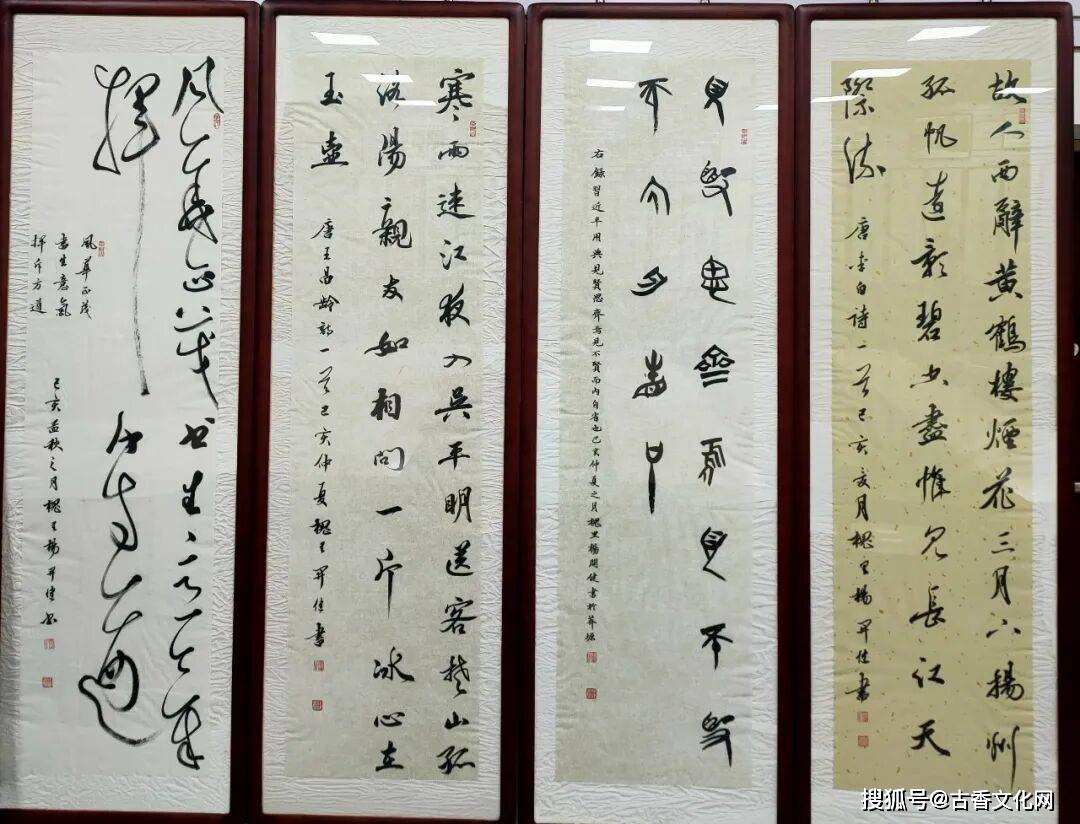 故人西辭黄鶴樓煙花三月下揚州
孤帆遠影碧空盡惟見長江天
際流
唐李白诗一首己亥亥月槐里楊開健書
見賢思齊焉見不賢
而内自省也
右錄習近平用典見賢思齊焉見不賢而内自省也己亥仲夏之月槐里楊開健書於莽塬
寒雨連江夜入吴平明送客楚山孤
洛陽親友如相問一片冰心在
玉壺
唐王昌齡詩一首己亥仲夏槐里開健書
風華正茂書生意氣
揮斥方遒
風華正茂
書生意氣
揮斥方遒
己亥孟秋之月槐里楊開健書
搜狐号@古香文化网